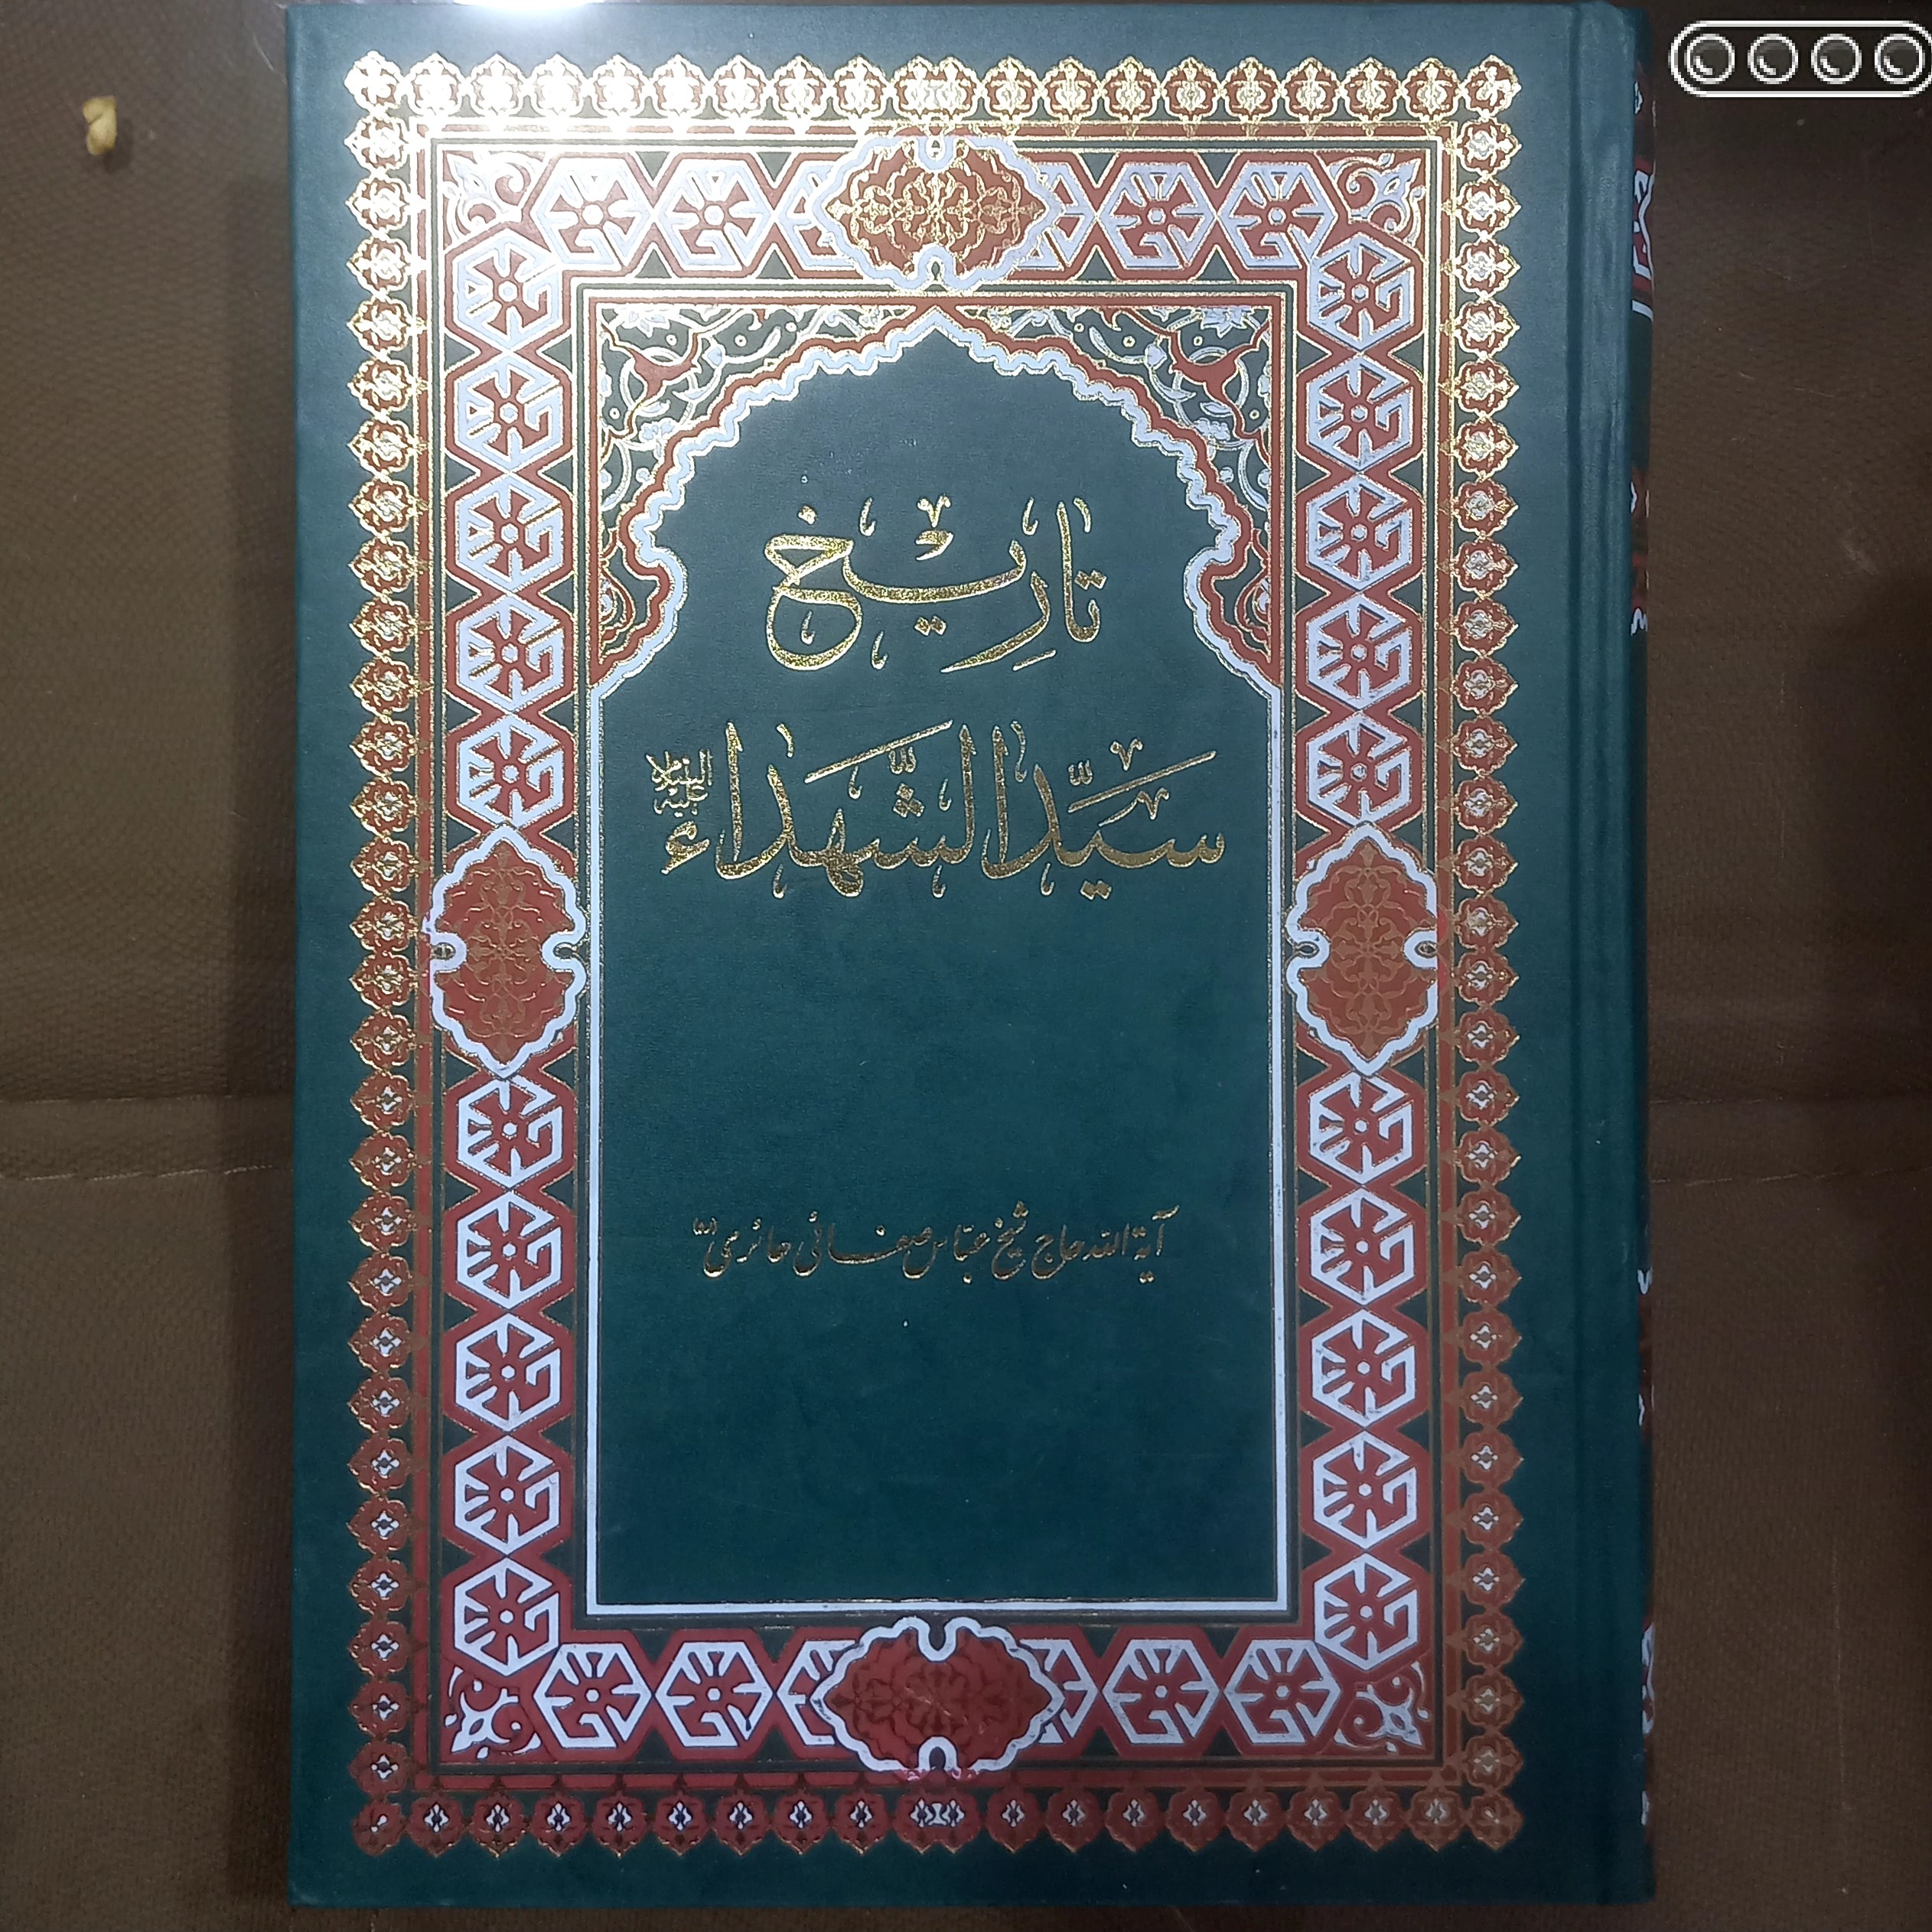 تاريخ
سيّد الشّهداء عليه السلام
آية الله حاج شيخ عبّاس صفائى حائرى